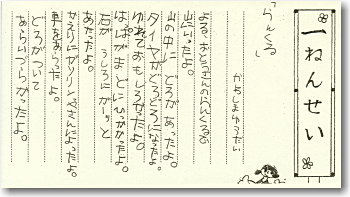 一ねんせい
「らんくる」
かちしまゆうだい
よる、おとうさんのらんくるで
山へいったよ。
山の中に どろがあったよ。
タイヤがどろどろになったよ。
ゆれておもしろかったよ。
はっぱが まどにひっかかったよ。
石が うしろにガーッと
あたったよ。
かえりにガソリンやさんによったよ。
車をあらったよ。
どろがついて
あらいづらかったよ。